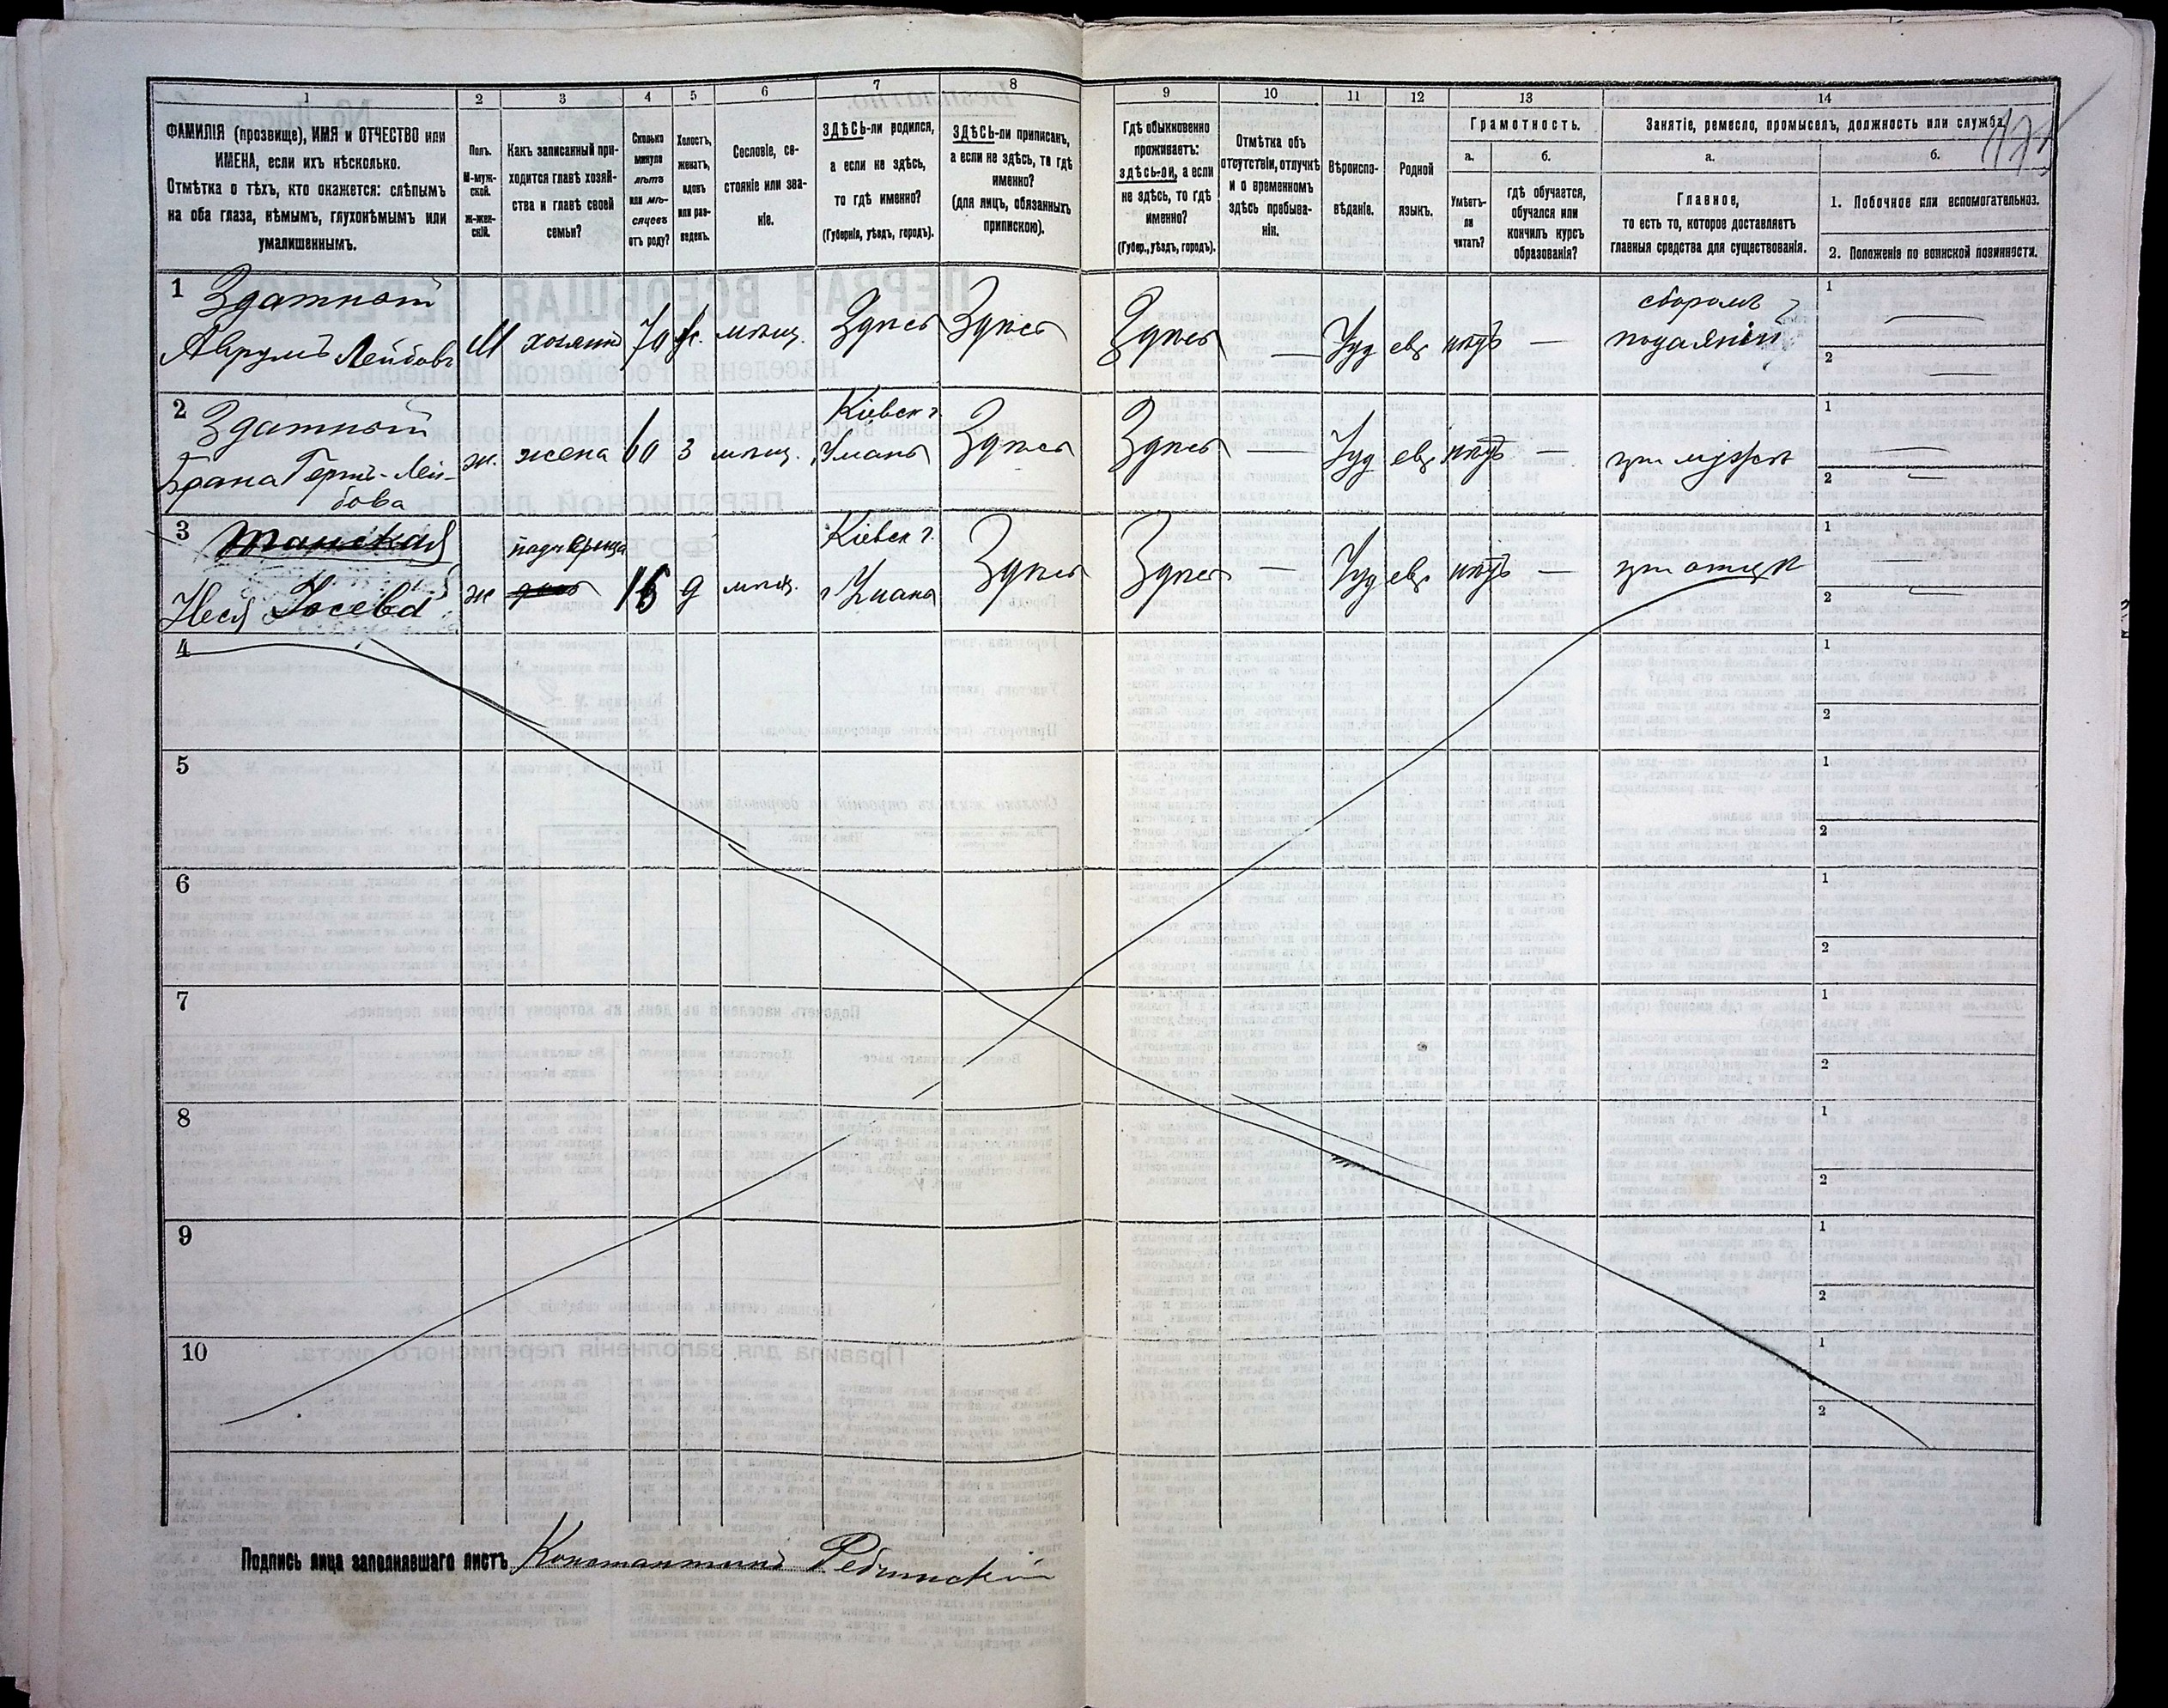 1
2
3
4
5
6
7
8
ФАМИЛІЯ (прозвище), ИМЯ и ОТЧЕСТВО или
ИМЕНА, если ихъ нѣсколько.
Отмѣтка о тѣхъ, кто окажется: слѣпымъ
на оба глаза, нѣмымъ, глухонѣмымъ или
умалишеннымъ.
Полъ.
М-муж-
ской.
Ж-жен-
скій.
Какъ записанный при-
ходится главѣ хозяй-
ства и главѣ своей
семьи?
Сколько
минуло
лѣтъ
или мѣ-
сяцевъ
отъ роду?
Холостъ,
женатъ,
вдовъ
или раз-
веденъ.
Сословіе, со-
стояніе или зва-
ніе.
ЗДѢСЬ-ли родился,
а если не здѣсь,
то гдѣ именно?
(Губернія, уѣздъ, городъ).
ЗДѢСЬ-ли приписанъ,
а если не здѣсь, то гдѣ
именно?
(для лицъ, обязанныхъ
припискою).
9
10
11
12
13
14
Гдѣ обыкновенно
проживаетъ:
здѣсь-ли, а если
не здѣсь, то гдѣ
именно?
(Губер., уѣздъ, городъ).
Отмѣтка объ
отсутствіи, отлучкѣ
и о временномъ
здѣсь пребыва-
ніи.
Вѣроиспо-
вѣданіе.
Родной
языкъ.
Грамотность.
а.
Умѣетъ-
ли
читать?
б.
гдѣ обучается,
обучался или
кончилъ курсъ
образованія?
Занятіе, ремесло, промыселъ, должность или служба.
а.
Главное,
то есть то, которое доставляетъ
главныя средства для существованія.
б.
1. Побочное или вспомогательное.
2. Положеніе по воинской повинности.
1 Здатной
Аврумъ Лейбовъ
М хозяинъ 70 ж. мѣщ. Здѣсь Здѣсь Здѣсь — Іуд евр нѣтъ —
сборомъ
подаяній
1 —
2 —
2 Здатной
Брана Герть-Лей-
бова
ж. жена 60 з мѣщ.
Кіевск г.
Умань
Здѣсь Здѣсь — Іуд евр нѣтъ — при мужѣ
1 —
2 —
3
Неся Іосева
ж
падчерица
16 д мѣщ.
Кіевск г.
г Умань
Здѣсь Здѣсь — Іуд евр нѣтъ — при отцѣ
1 —
2 —
4
1
2
5
1
2
6
1
2
7
1
2
8
1
2
9
1
2
10
1
2
Подпись лица заполнявшаго листъ Константинъ